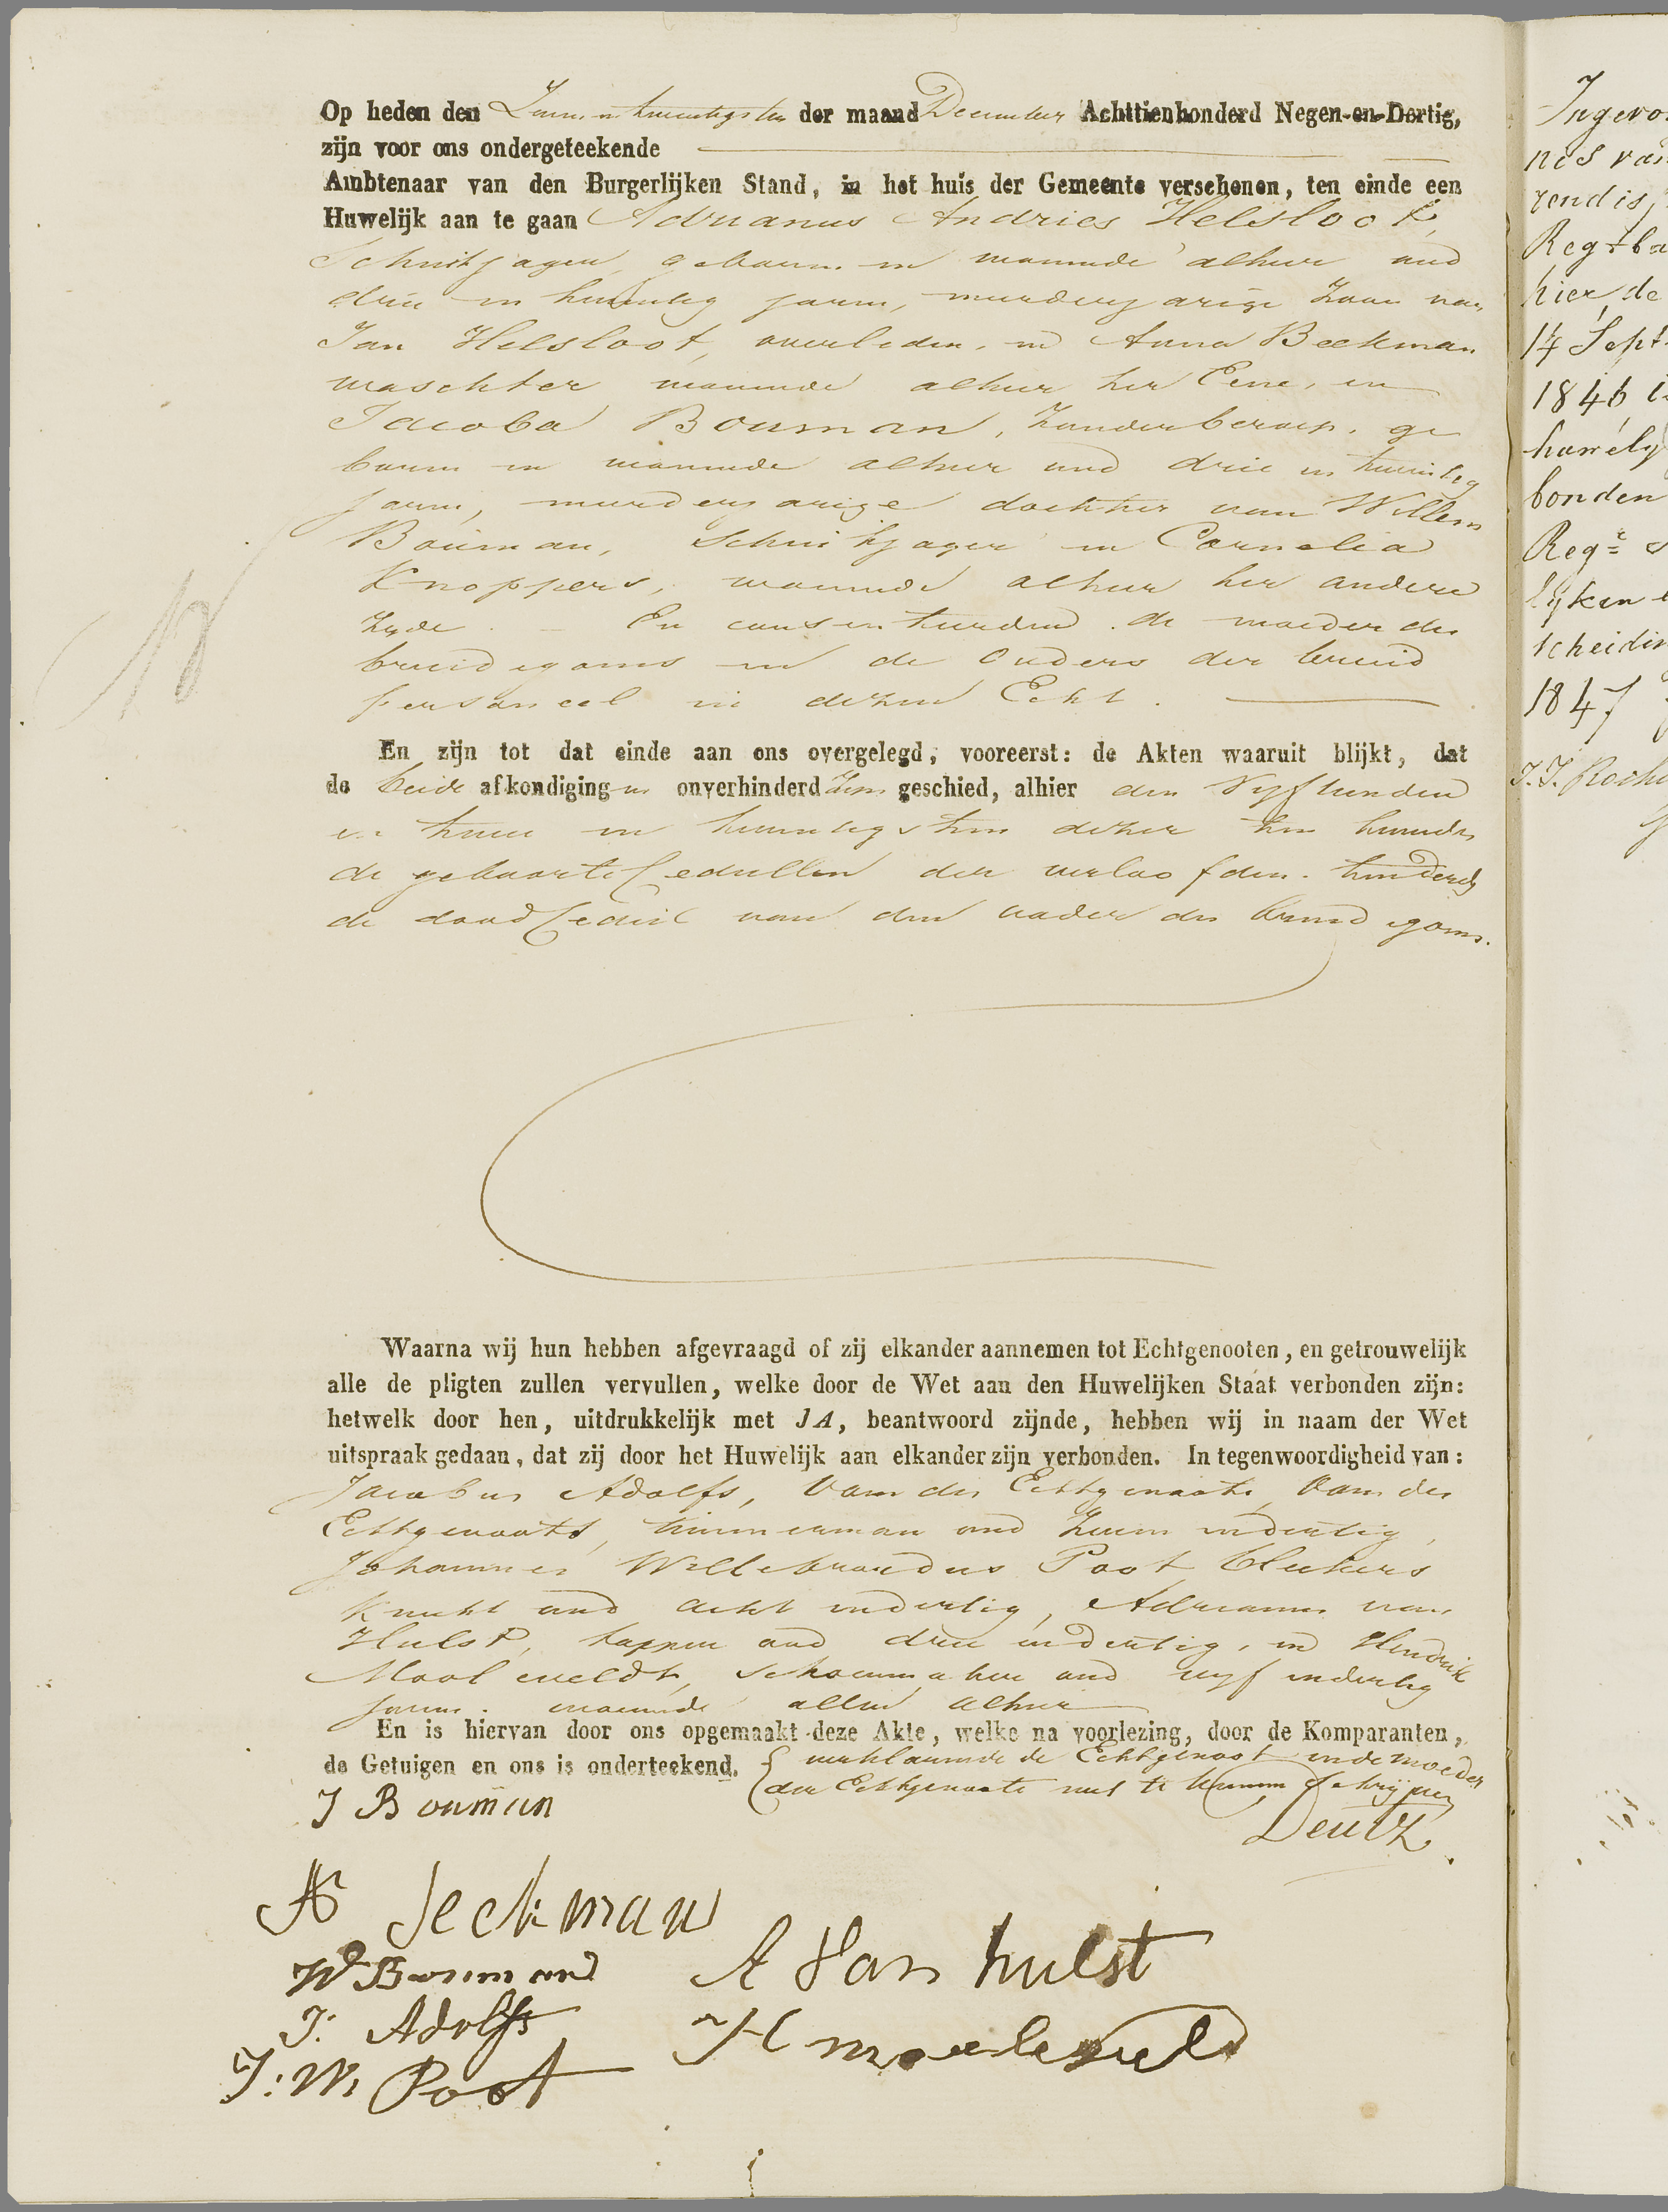 Op heden den Zeven en twintigsten der maand December Achttienhonderd Negen-en-Dertig,
zijn voor ons ondergeteekende
Ambtenaar van den Burgerlijken Stand, in het huis der Gemeente verschenen, ten einde een
Huwelijk aan te gaan Adrianus Andries Helsloot,
Schuitjager, geboren en wonende alhier oud
drie en twintig jaren, meerderjarige Zoon van
Jan Helsloot, overleden, en Anna Beekman
waschter wonende alhier ter Eene, en
Jacoba Bouman, Zonder beroep, ge
boren en wonende alhier oud drie en twintig
jaren, meerderjarige dochter van Willem
Bouman, Schuitjager en Cornelia
Knoppers, wonende alhier ter andere
Zyde. – En consenteerden de moeder des
bruidegoms en de Ouders der bruid
personeel in dezen Echt.
En zijn tot dat einde aan ons overgelegd, vooreerst: de Akten waaruit blijkt, dat
de beide afkondigingen onverhinderd zyn geschied, alhier den Vyftienden
en twee en twintigsten dezer ten tweeden
de geboorte Cedullen der verloofden. ten derde
de dood Cedul van den vader des bruidegoms.
Waarna wij hun hebben afgevraagd of zij elkander aannemen tot Echtgenooten, en getrouwelijk
alle de pligten zullen vervullen, welke door de Wet aan den Huwelijken Staat verbonden zijn:
hetwelk door hen, uitdrukkelijk met JA, beantwoord zijnde, hebben wij in naam der Wet
uitspraak gedaan, dat zij door het Huwelijk aan elkander zijn verbonden. In tegenwoordigheid van:
Jacobus Adolfs, Oom der Echtgenoote, Oom des
Echtgenoots, timmerman oud Zeven en dertig,
Johannes Willebrordus Poot, bleekers
knecht oud acht en dertig, Adrianus van
Hulst, tapper oud drie en dertig, en Hendrik
Mooleveldt, schoenmaker oud vyf en dertig
jaren. wonende allen alhier
En is hiervan door ons opgemaakt deze Akte, welke na voorlezing, door de Komparanten,
de Getuigen en ons is onderteekend. verklarende de Echtgenoot en de moeder
der Echtgenoote niet te kunnen schrijven
J Bouman
Deutz
A Beekman
W Bouman
A Van hulst
J: Adolfs
H mooleveld
J: W: Poot
Ingevo
nis van
rendis
Regtba
hier de
14 Sept
1846 i
huwely
bonden
Regr
lyken
scheidin
1847